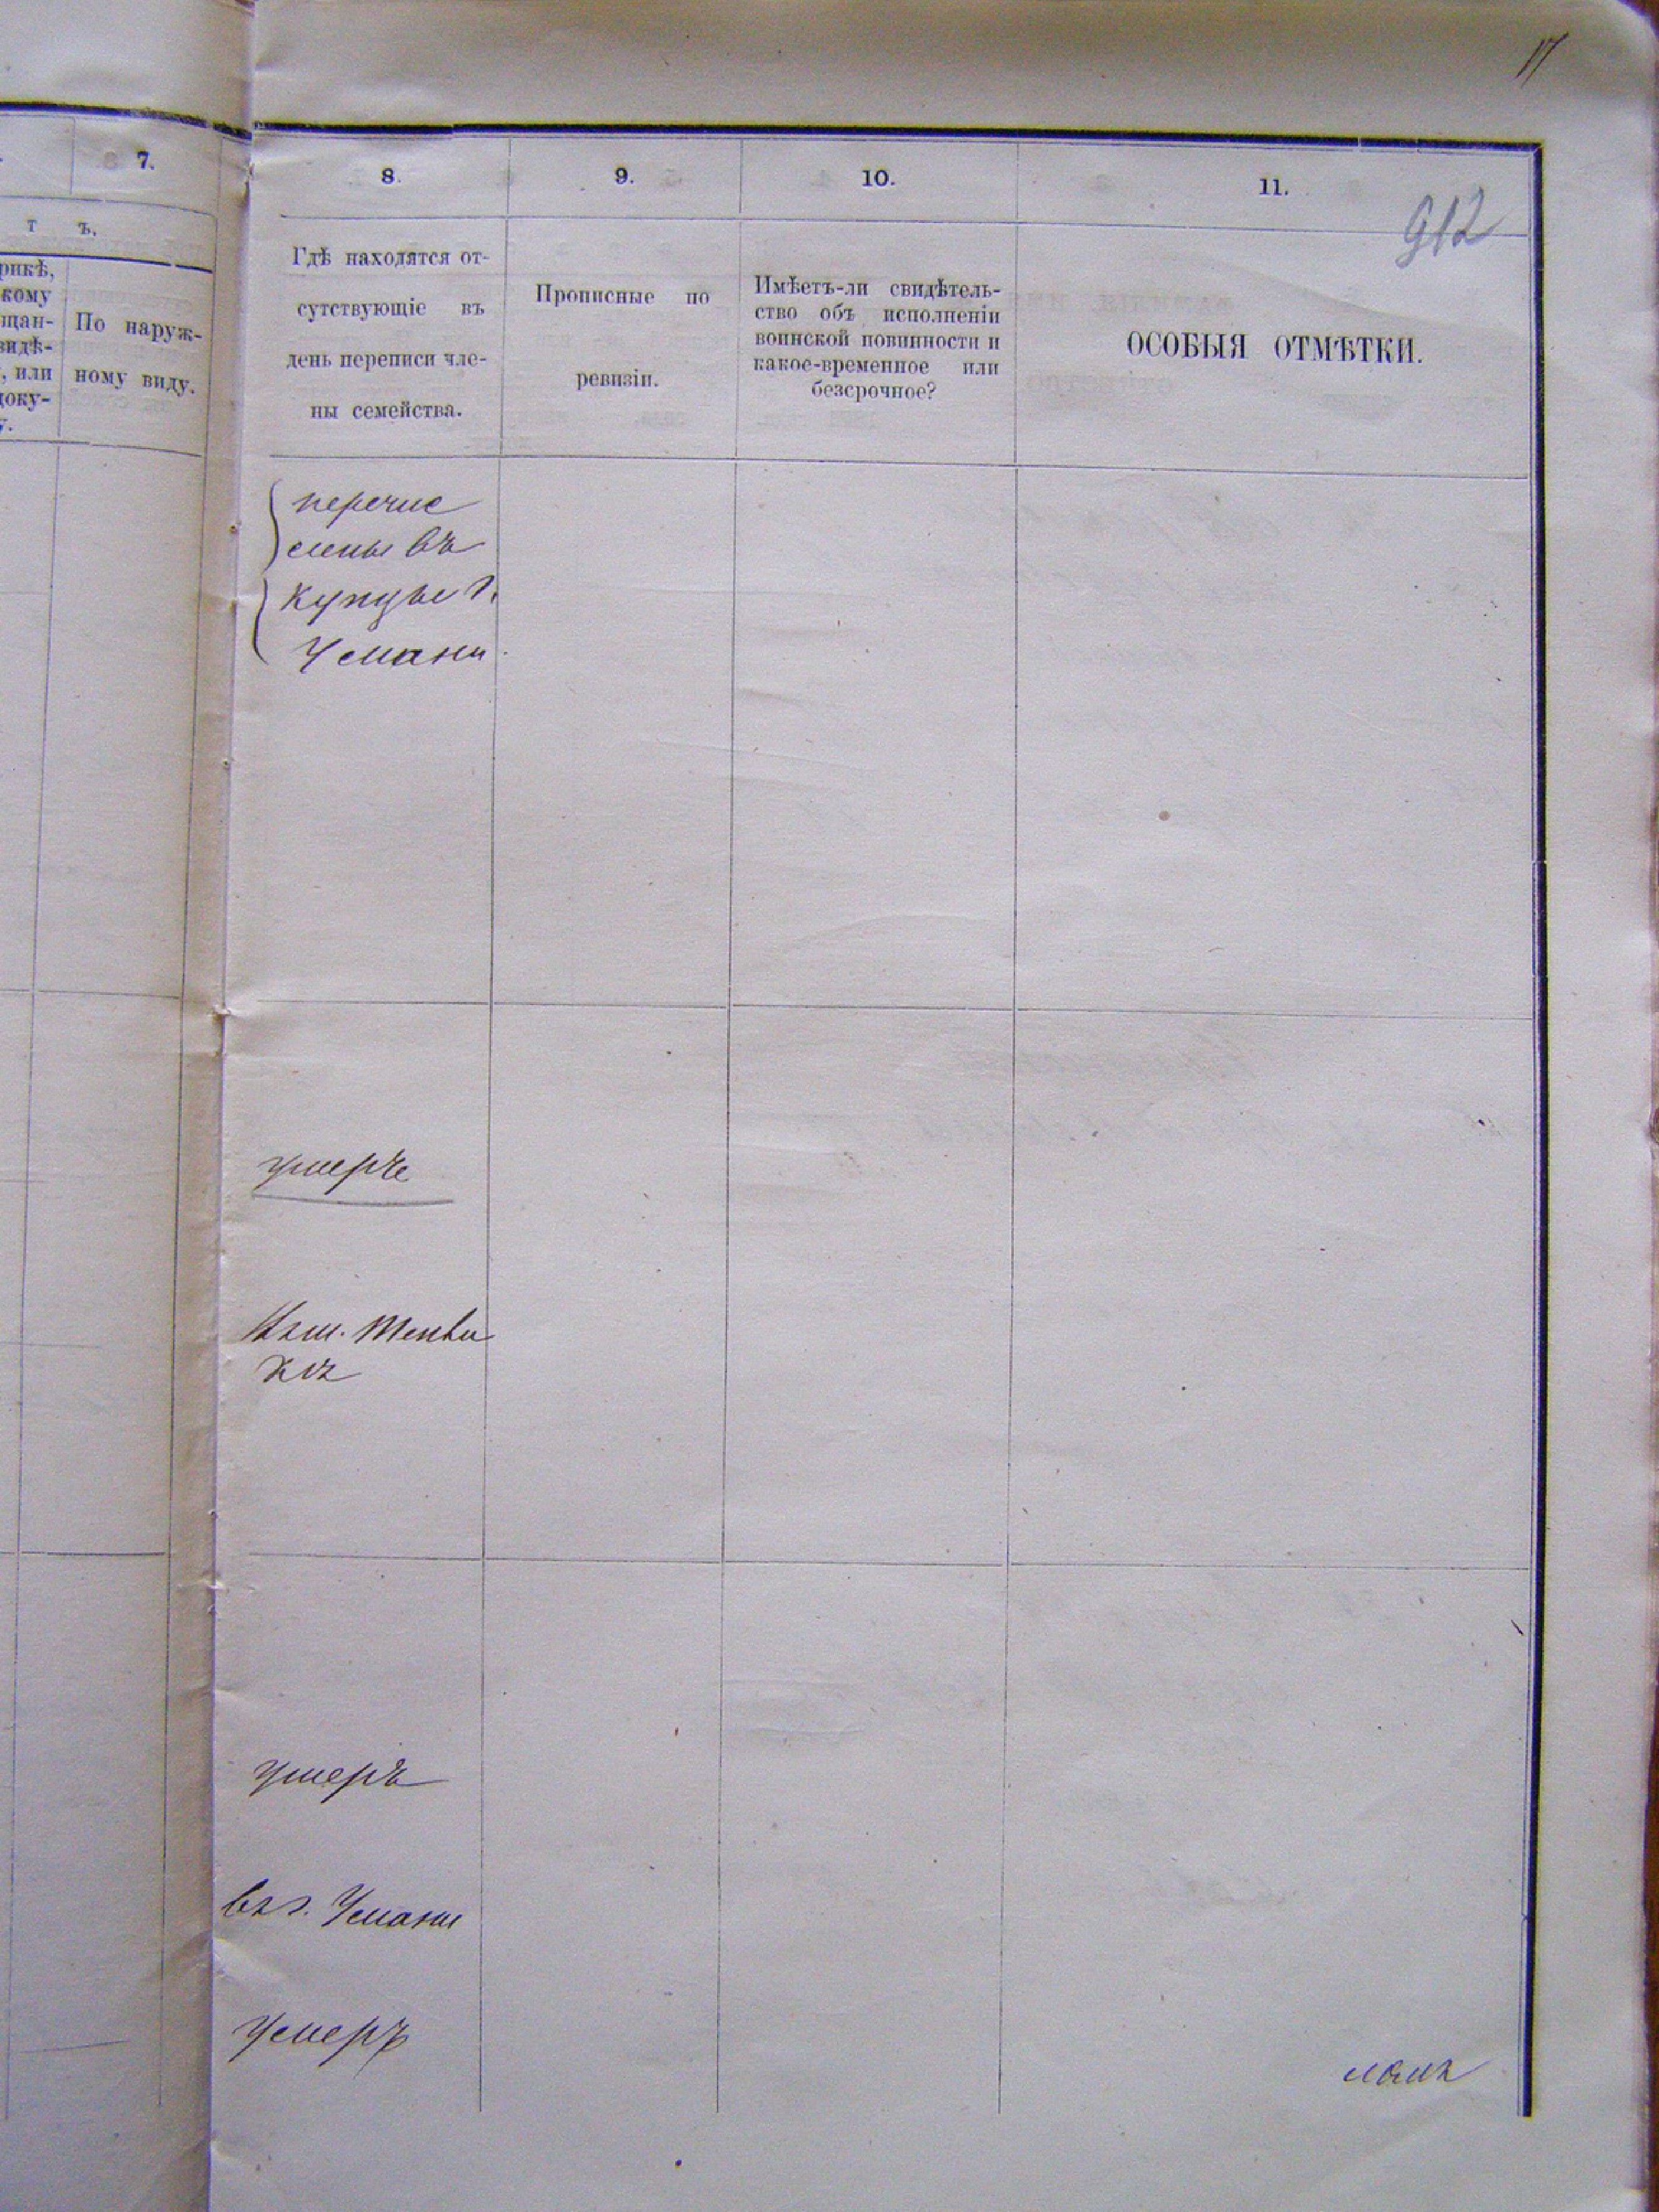 17
7.
8.
9.
10.
11.
912
т ъ.
рикѣ,
кому
щан-
видѣ-
, или
доку-
у.
По наруж-
ному виду.
Гдѣ находятся от-
сутствующіе въ
день переписи чле-
ны семейства.
Прописные по
ревизіи.
Имѣетъ-ли свидѣтель-
ство объ исполненіи
воинской повинности и
какое-временное или
безсрочное?
ОСОБЫЯ ОТМѢТКИ.
перечис
лены въ
купцы г.
Умани.
умеръ
умеръ
въ г. Умани
умеръ